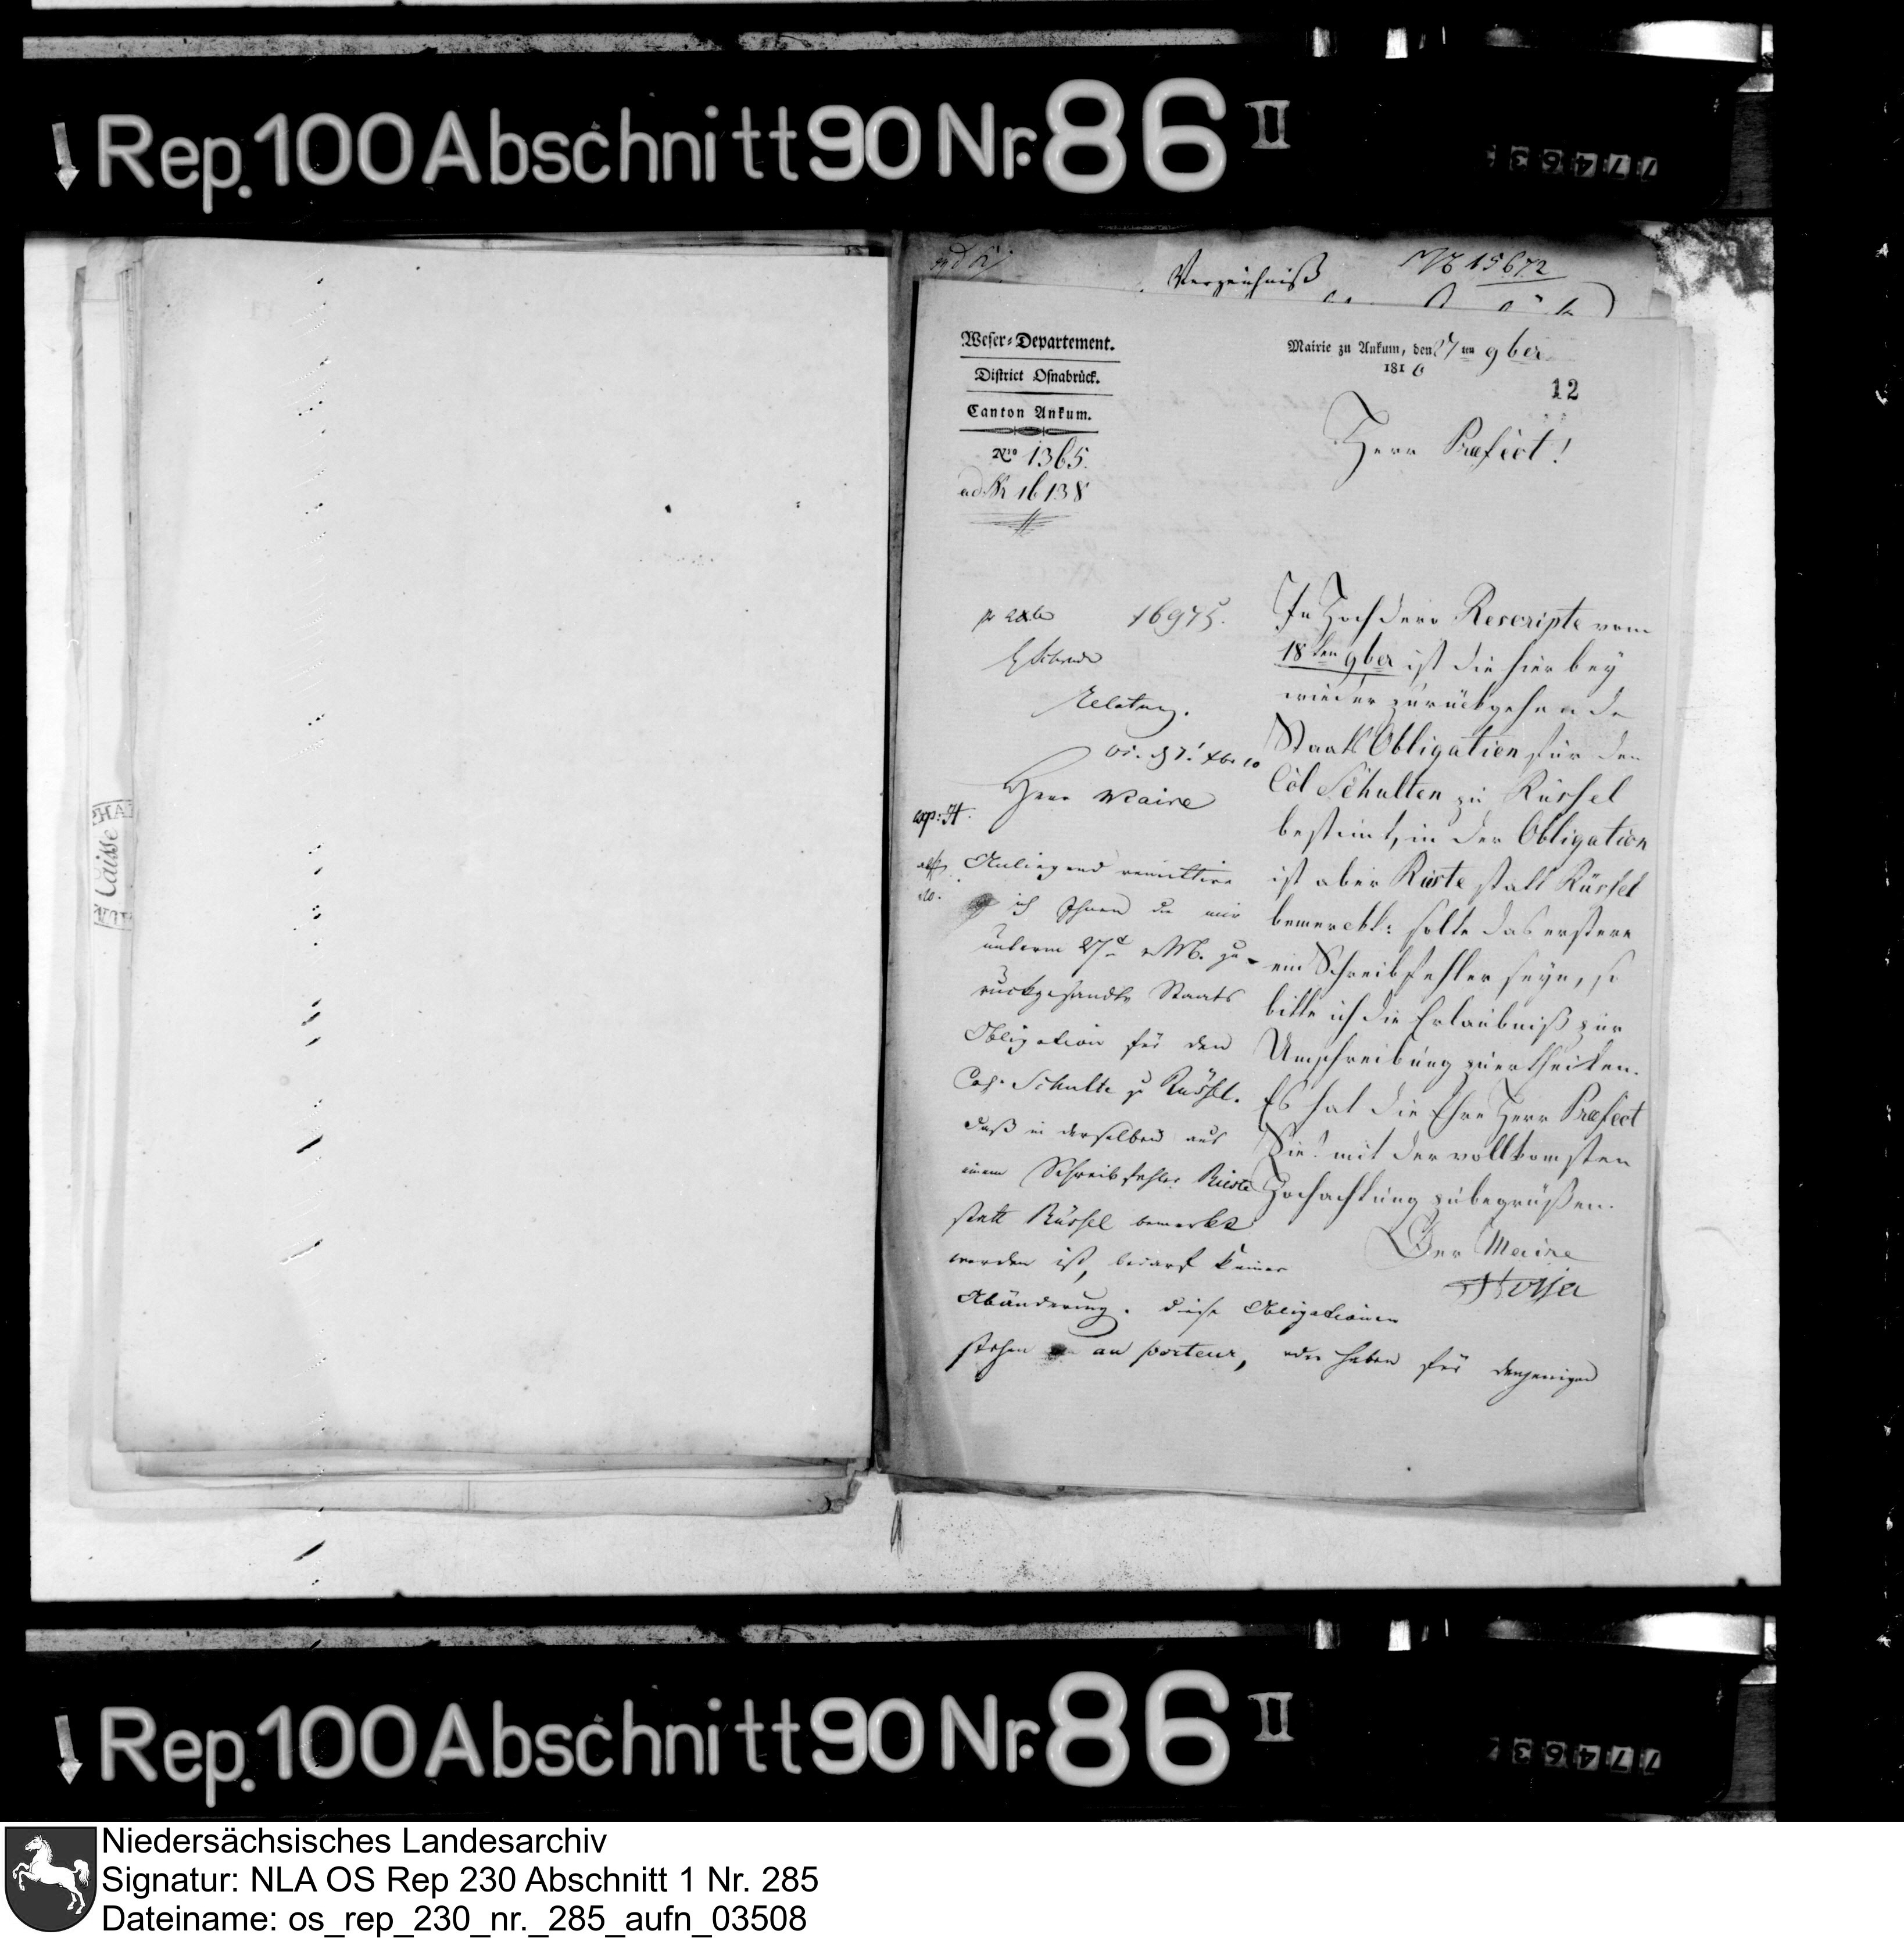 Rep. 100 Abschnitt 90 Nr. 86 II
77463
Verzeichniß
15672
Weser-Departement.
District Osnabrück.
Canton Ankum.
No 1365.
ad № 16138
Mairie zu Ankum, den 27ten 9ber
1810
12
Herr Præfect!
In Hochdero Rescripte vom
18ten 9ber ist die hier bey
wieder zurückgehende
Staats Obligation für den
Col Schulten zu Rüssel
bestimt, in der Obligation
ist aber Rüste statt Rüssel
bemerckt: solte das erstere
ein Schreibfehler seyn, so
bitte ich die Erlaubniß zur
Umschreibung zu ertheilen.
Es hat die Ehre Herr Præfect
Sie! mit der vollkomsten
Hochachtung zu begrüßen.
Der Maire
16975.
Os.
Herr Maire
Anliegend remittire
ich Ihnen die mir
unterm 27t v. M. zu-
rückgesandte Staats
Obligation für den
Col. Schulte zu Rüssel.
Daß in derselben aus
einem Schreibfehler Rieste
statt Rüssel bemerkt
worden ist, bedarf keiner
Abänderung. Diese Obligationen
stehen au porteur, oder haben für denjenigen
Caisse
Rep. 100 Abschnitt 90 Nr. 86 II
77463
Niedersächsisches Landesarchiv
Signatur: NLA OS Rep 230 Abschnitt 1 Nr. 285
Dateiname: os_rep_230_nr._285_aufn_03508